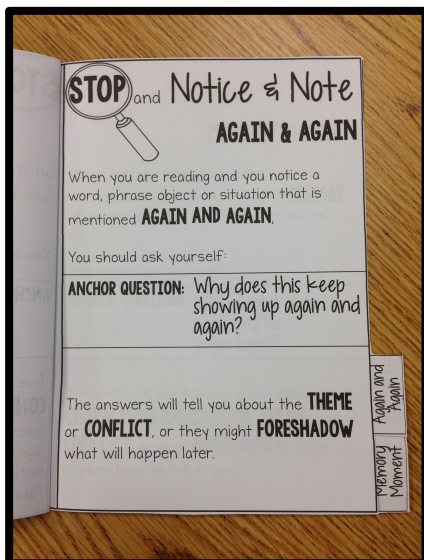 STOP and Notice & Note
AGAIN & AGAIN
When you are reading and you notice a
word, phrase object or situation that is
mentioned AGAIN AND AGAIN,
You should ask yourself:
ANCHOR QUESTION: Why does this keep
showing up again and
again?
The answers will tell you about the THEME
or CONFLICT, or they might FORESHADOW
what will happen later.
Again and
Again
Memory
Moment